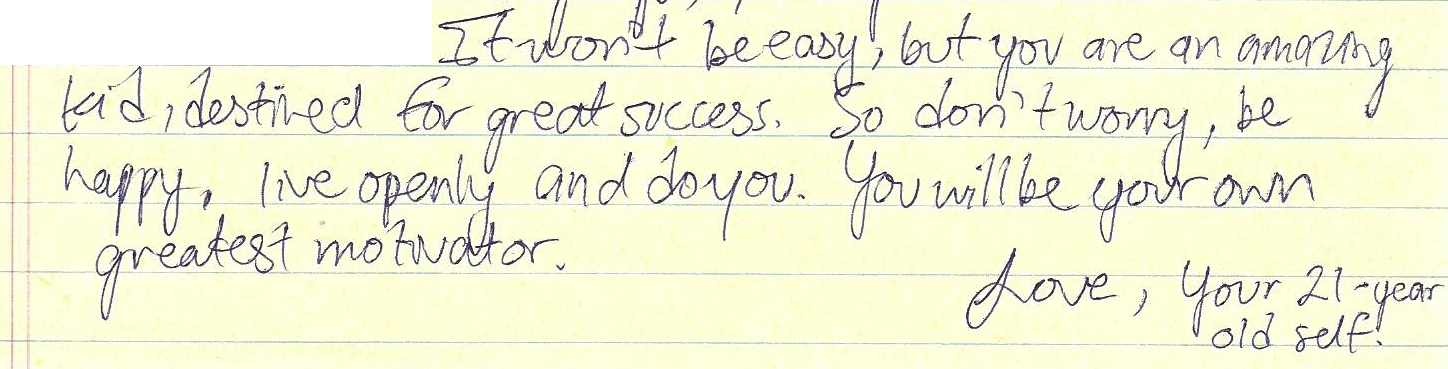 It won't be easy, but you are an amazing
kid, destined for great success. So don't worry, be
happy, live openly and do you. You will be your own
greatest motivator.
Love, Your 21-year
old self.